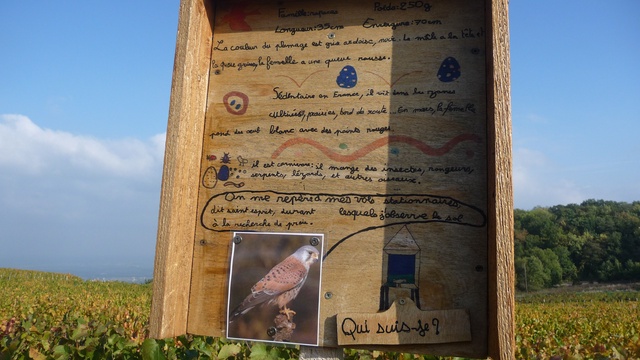 Famille: rapaces Poids: 250g
Longueur: 35cm Envergure: 70cm
La couleur du plumage est gris ardoise, noir. le mâle a la tête et
la queue grise, la femelle a une queue rousse.
Sédentaire en France, il vit dans les zones
cultivées, prairies, bord de route. En mars, la femelle
pond des oeufs blanc avec des points rouges.
il est carnivore: il mange des insectes, rongeurs,
serpents, lézards, et autres oiseaux.
On me repère à mes vols stationnaires
dit saint esprit, durant lesquels j'observe le sol
à la recherche de proie.
Qui suis-je?